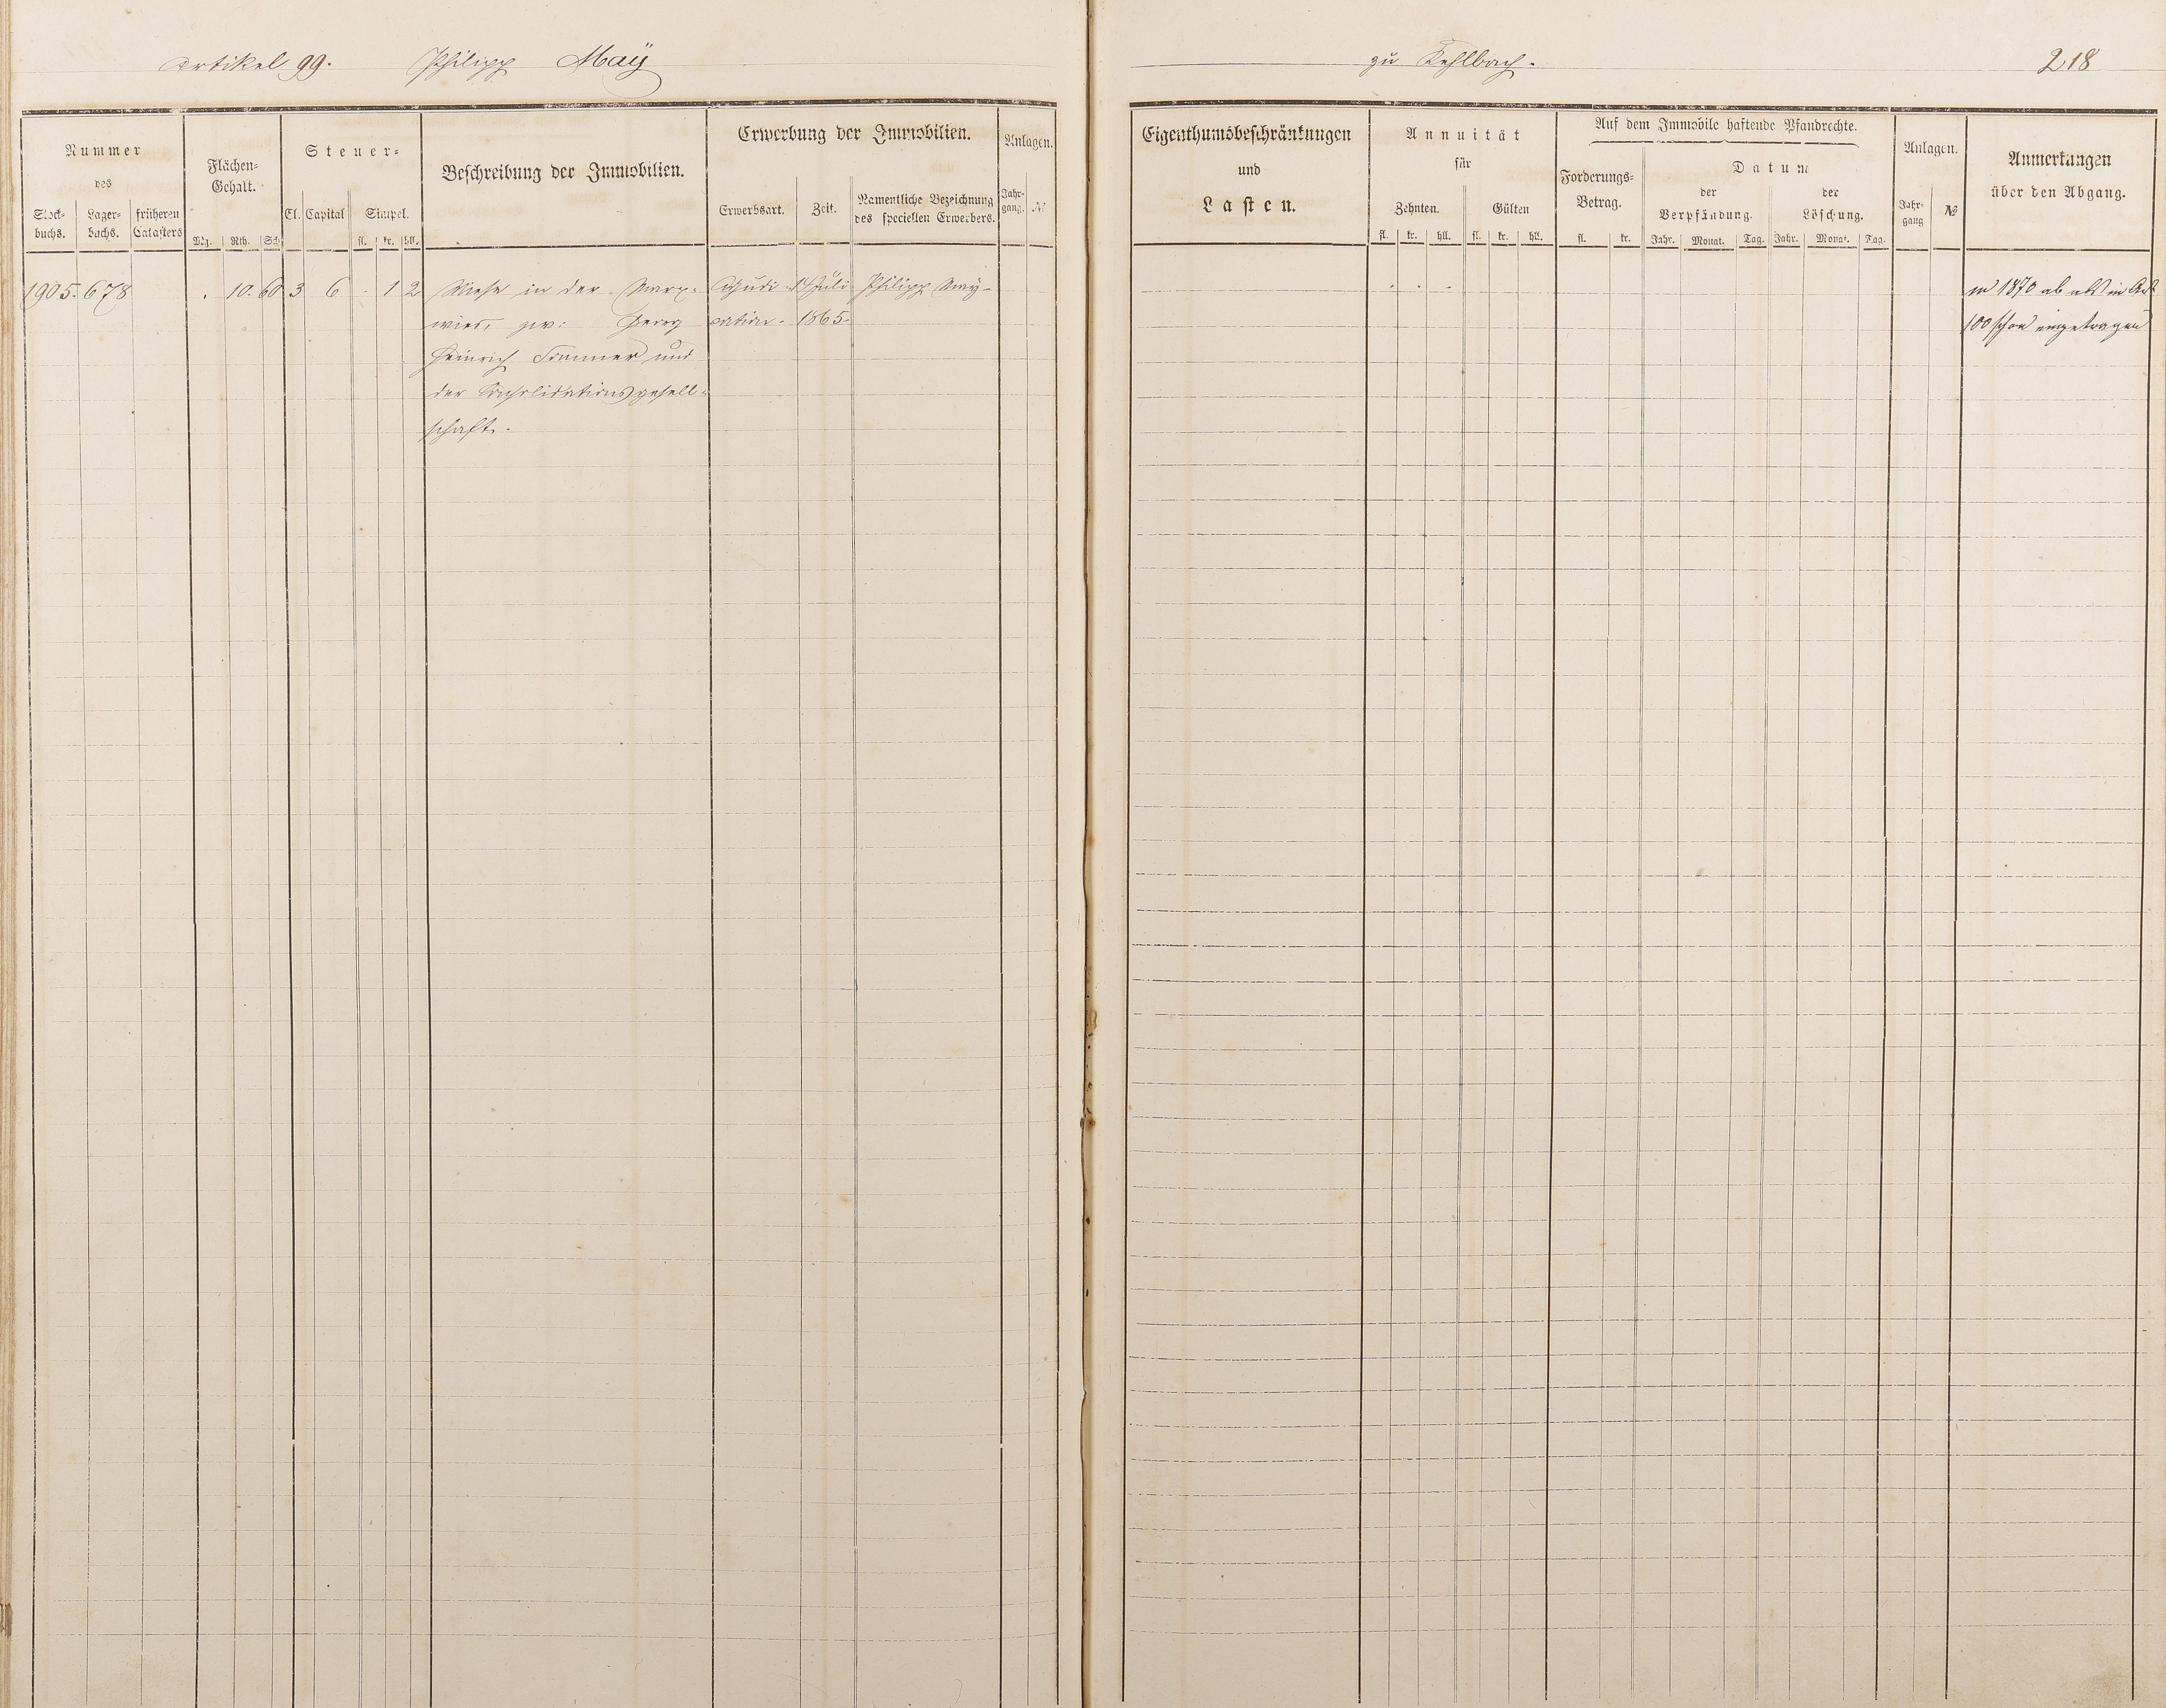 Artikel 99. Philipp Maÿ
zu Kehlbach. 218
Nummer
des
Stock-
buchs.
Lager-
buchs.
früheren
Catasters
Flächen-
Gehalt.
Mg. Rth. Sch
Steuer-
Cl. Capital Simpel.
fl. kr. hll.
Beschreibung der Immobilien.
Erwerbung der Immobilien.
Erwerbsart. Zeit.
Namentliche Bezeichnung
des speciellen Erwerbers.
Anlagen.
Jahr-
gang. №
Eigenthumsbeschränkungen
und
Lasten.
Annuität
für
Zehnten. Gülten
fl. kr. hll. fl. kr. hll.
Auf dem Immobile haftende Pfandrechte.
Forderungs-
Betrag.
fl. kr.
Datum
der
Verpfändung.
der
Löschung.
Jahr. Monat. Tag. Jahr. Monat. Tag.
Anlagen.
Jahr-
gang №
Anmerkungen
über den Abgang.
1905. 678 . 10. 60 3 6 - 1 2
Wiese in der
wies, zw: Georg
Heinrich und
der Consolidationsgesell-
schaft.
1865.
Philipp Maÿ
1870 ab als in Art
100 schon eingetragen